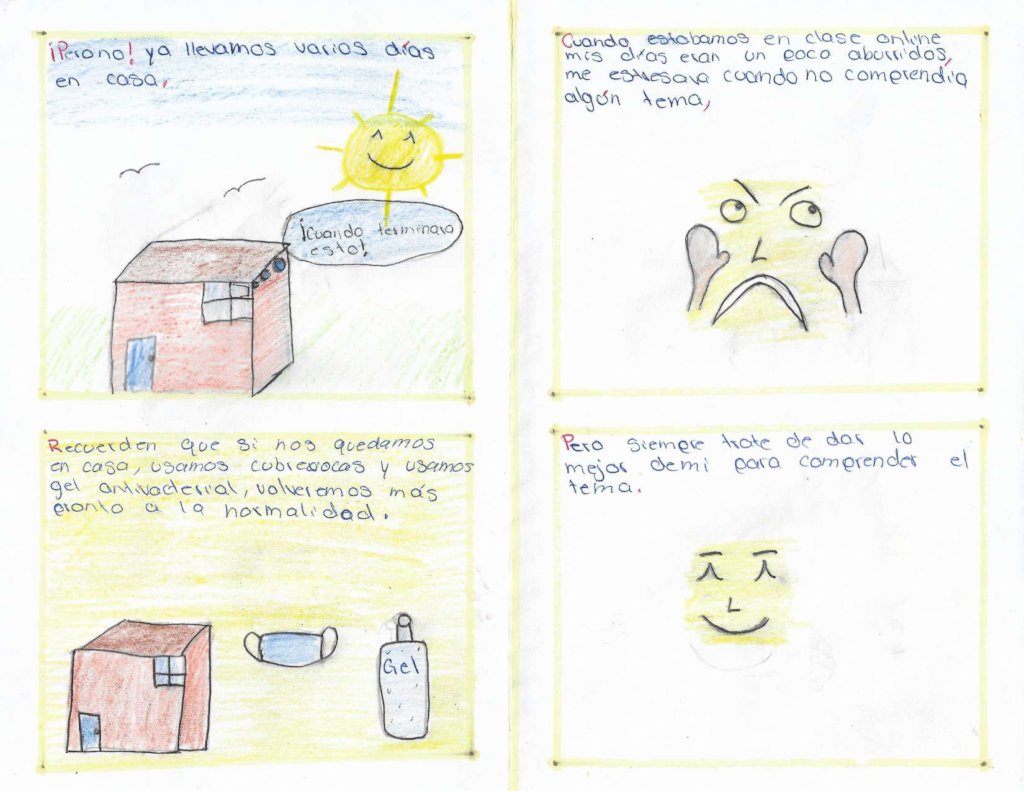 ¡Perono! ya llevamos varios días
en casa,
¡Cuando terminara
esto!
Recuerden que si nos quedamos
en casa, usamos cubrebocas y usamos
gel antivacterial, volveremos más
pronto a la normalidad.
Gel
Cuando estabamos en clase online
mis días eran un poco aburridos,
me estresava cuando no comprendia
algún tema,
Pero siempre trate de dar lo
mejor demi para comprender el
tema.